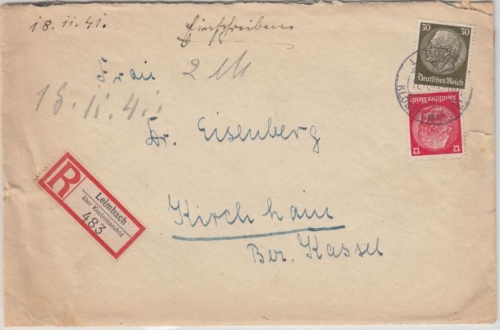 18.11.41.
Einschreiben
Frau
18.11.41.
Dr. Eisenberg
Kirchhain
Bez. Kassel
R
Leimbach
483
30 30
Deutsches Reich
Deutsches Reich
12 12